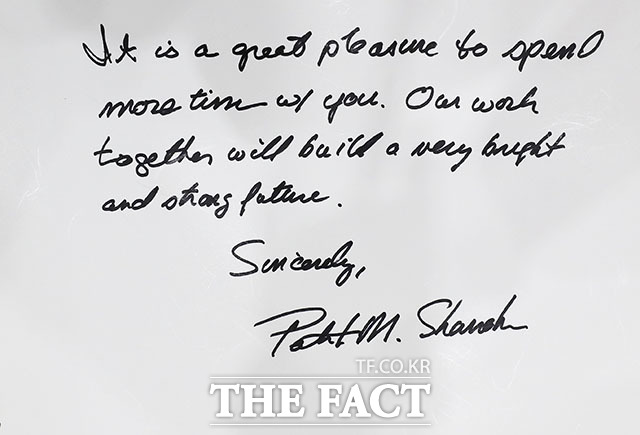 It is a great pleasure to spend
more time w/ you. Our work
together will build a very bright
and strong future.
Sincerely,
Patrick M. Shanahan
TF.CO.KR
THE FACT